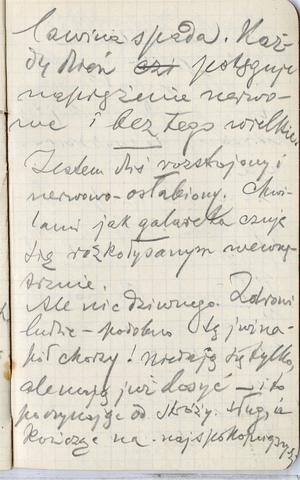 lawina spada. Każ-
dy dzień czi potęguje
napięzenie nerwo-
we i bez tego wielkie.
Jestem dziś rozstrojony i
nerwowo-osłabiony. Chwi-
lami jak galareta czuję
się rozkołysanym wewnę-
trznie.
Ale nic dziwnego. Zdrowi
ludzie – podobno są już na-
pół chorzy! Nie dają się tylko,
ale mają już dosyć – i to
począwszy od straży. służ
kończąc na najspokojniejszych